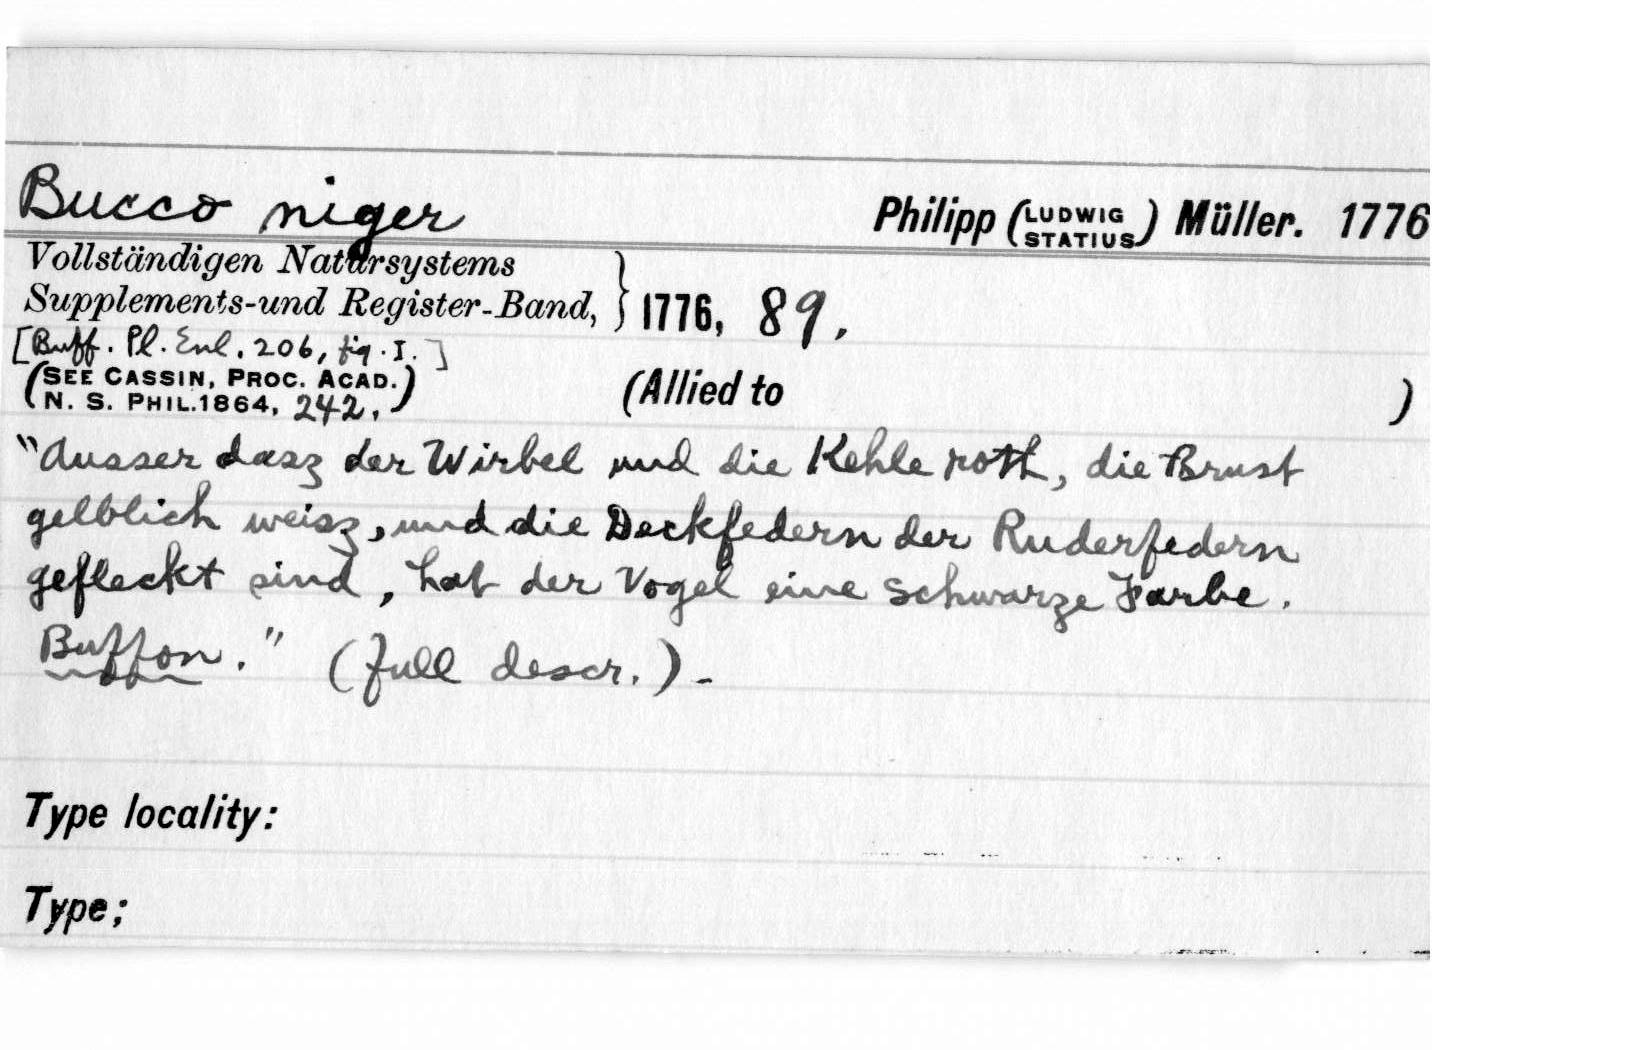 Bucco niger Philipp (LUDWIG STATIUS) Müller. 1776
Vollständigen Natursystems
Supplements-und Register-Band, } 1776, 89.
[Buff. Pl. Enl. 206, fig. I.]
(SEE CASSIN, PROC. ACAD.
N. S. PHIL. 1864, 242.) (Allied to )
"Ausser dasz der Wirbel und die Kehle roth, die Brust
gelblich weisz, und die Deckfedern der Ruderfedern
gefleckt sind, hat der Vogel eine schwarze Farbe.
Buffon." (full descr.). -
Type locality:
Type;